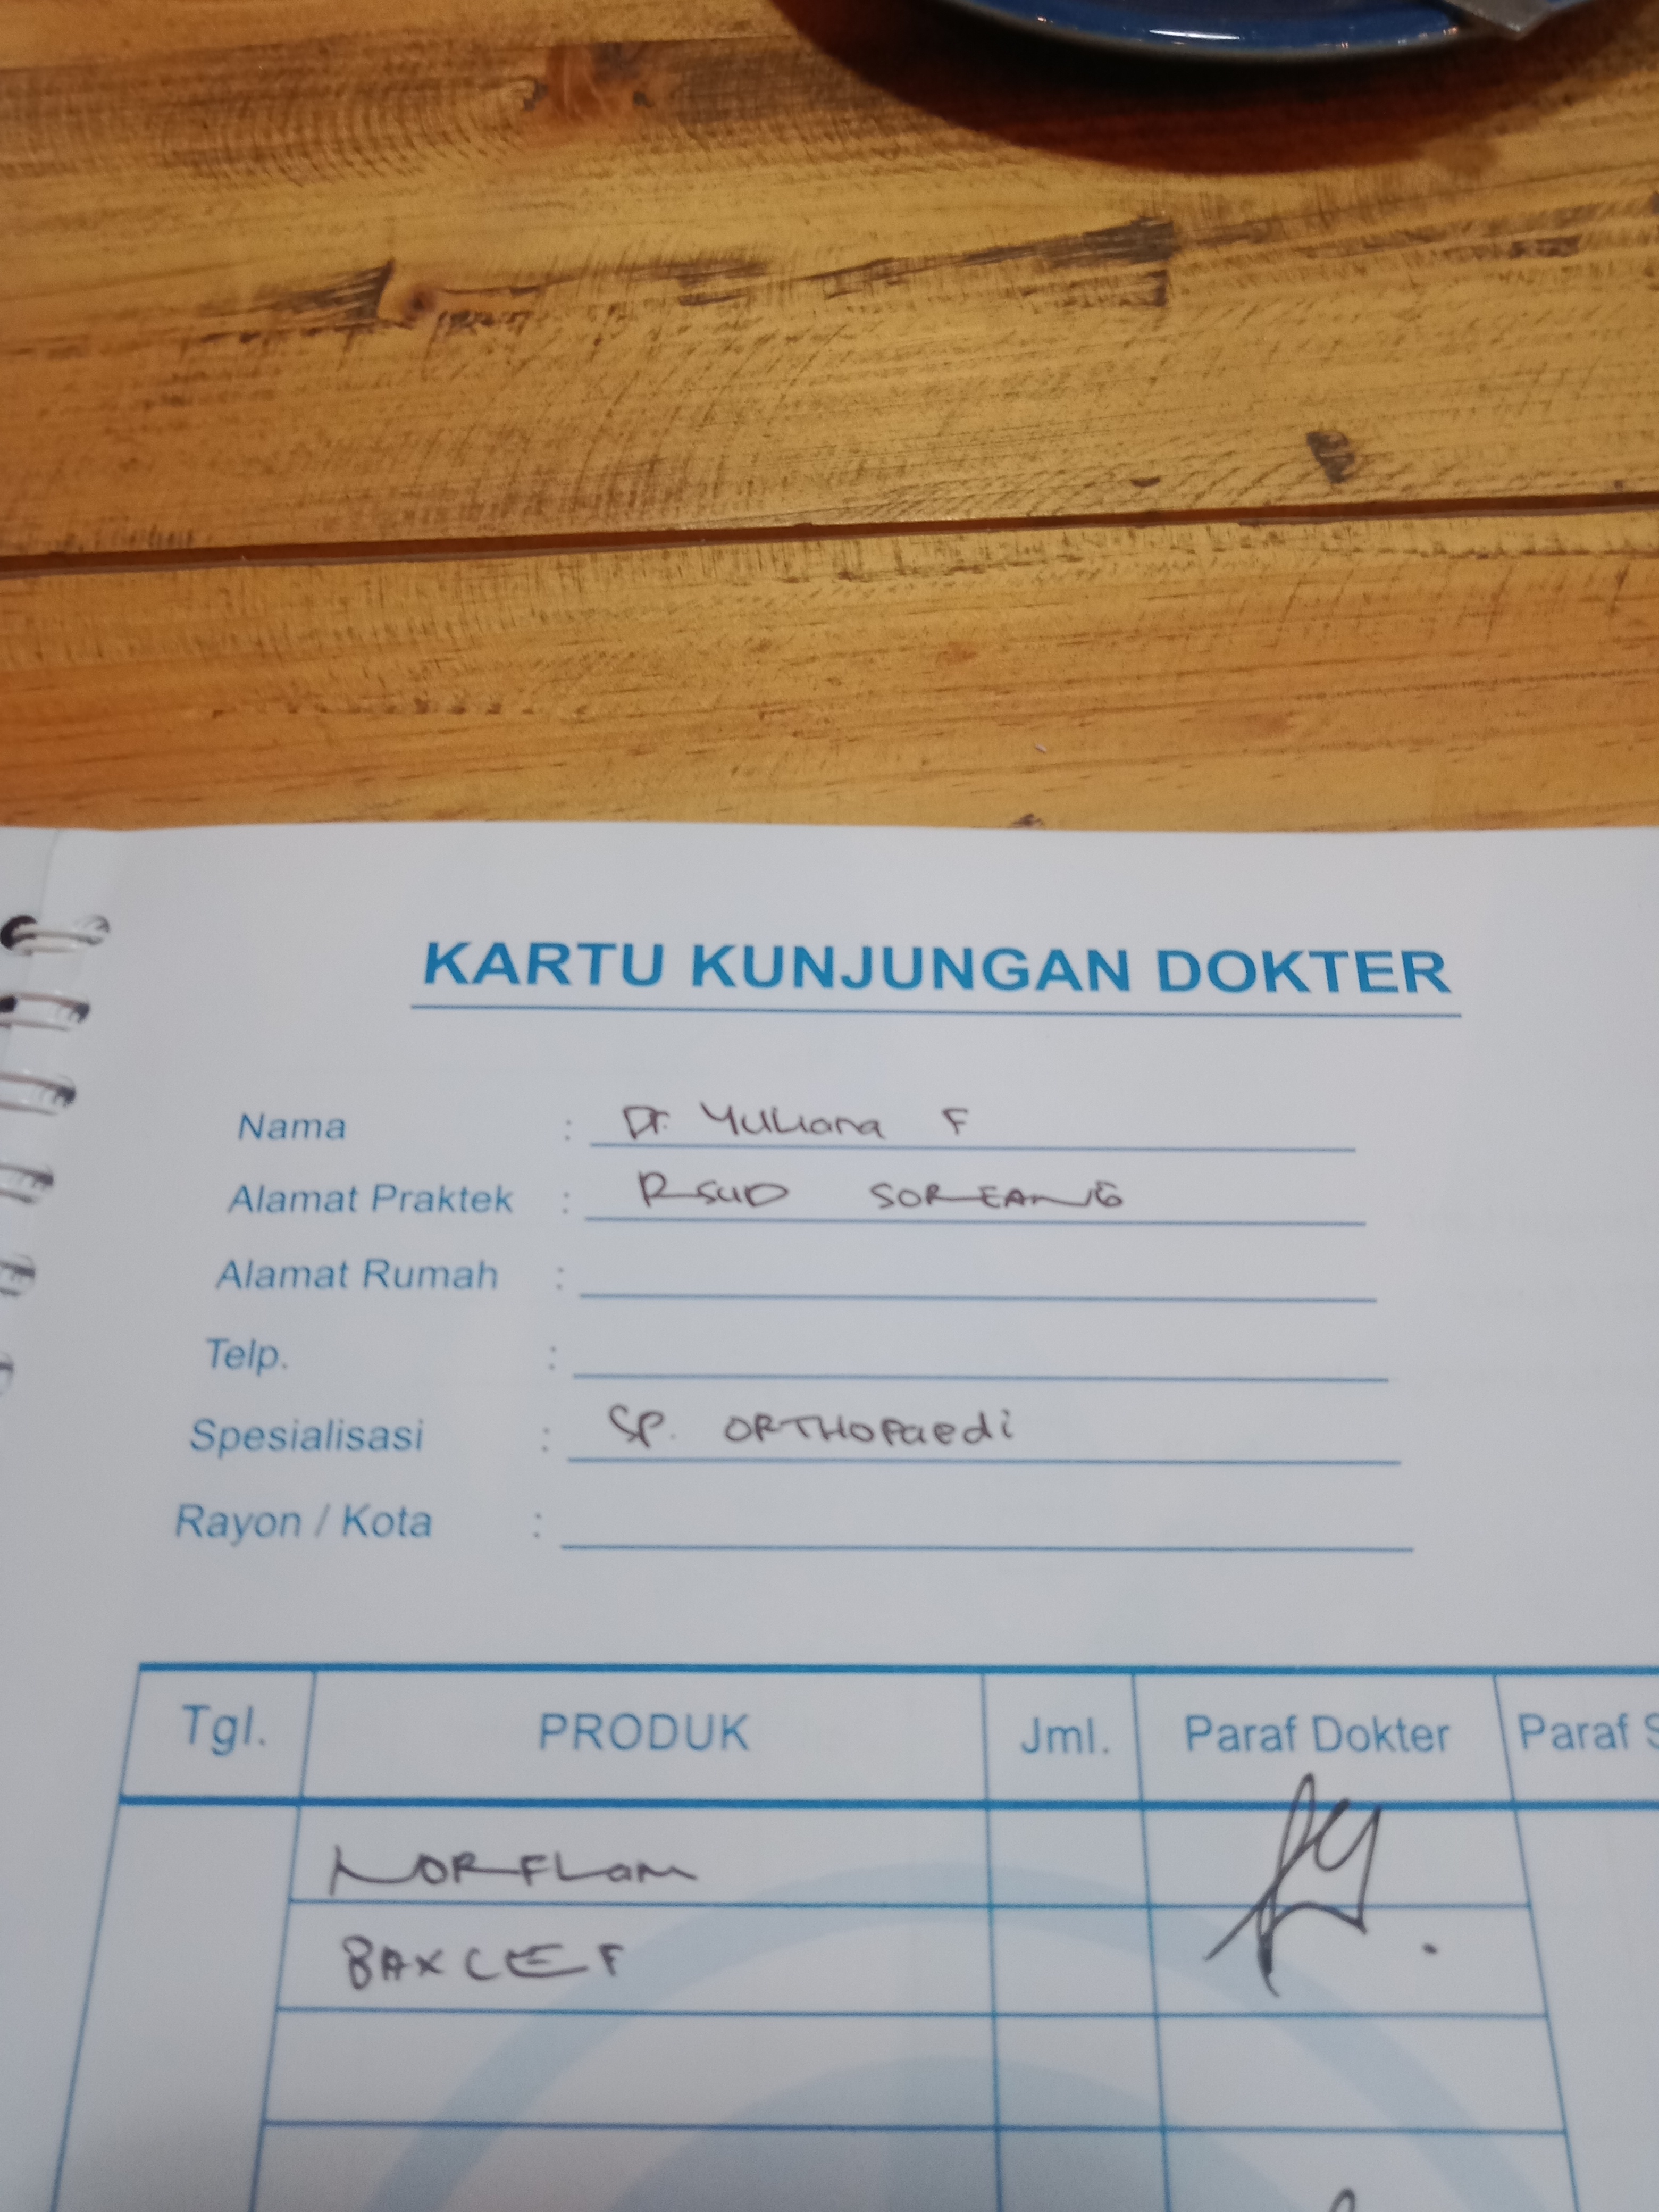 KARTU KUNJUNGAN DOKTER
Nama : Dr. Yuliana F
Alamat Praktek : RSUD SOREANG
Alamat Rumah :
Telp. :
Spesialisasi : SP. ORTHOPaedi
Rayon / Kota :
Tgl. PRODUK Jml. Paraf Dokter Paraf S
NORFLam
BAXCEF